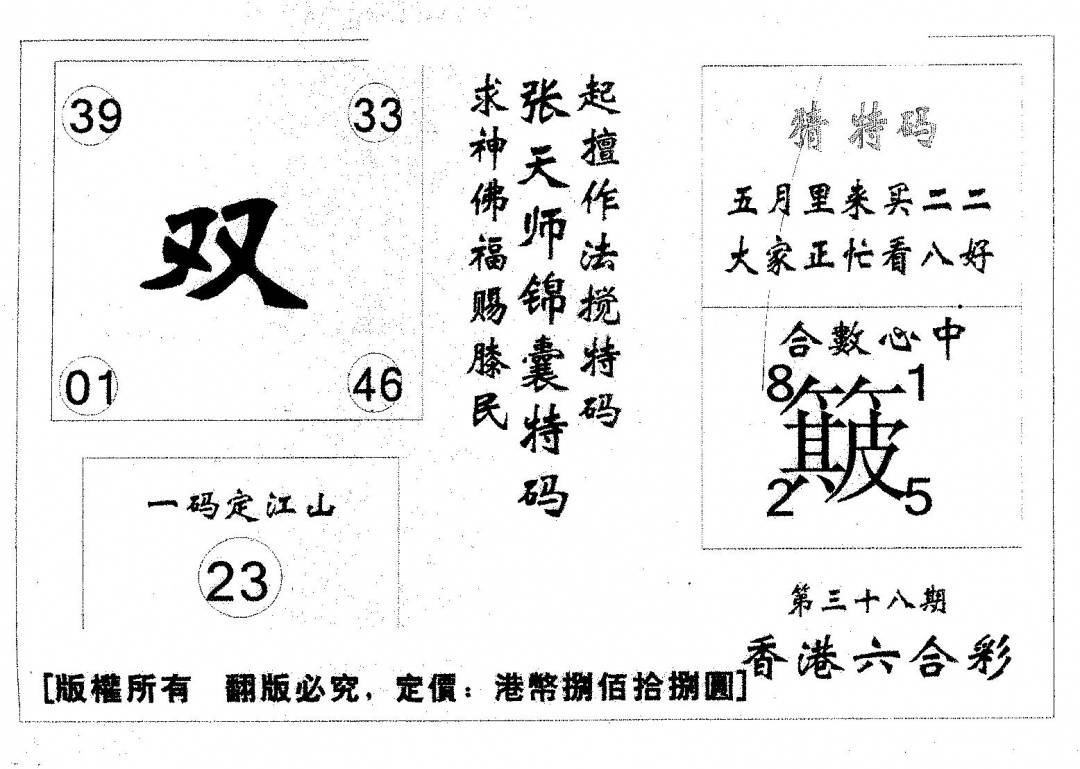 39 33
双
01 46
一码定江山
23
起擅作法搅特码
张天师锦囊特码
求神佛福赐膝民
猜特码
五月里来买二二
大家正忙看八好
合數心中
8 1
簸
2 5
第三十八期
香港六合彩
[版權所有 翻版必究，定價：港幣捌佰拾捌圓]